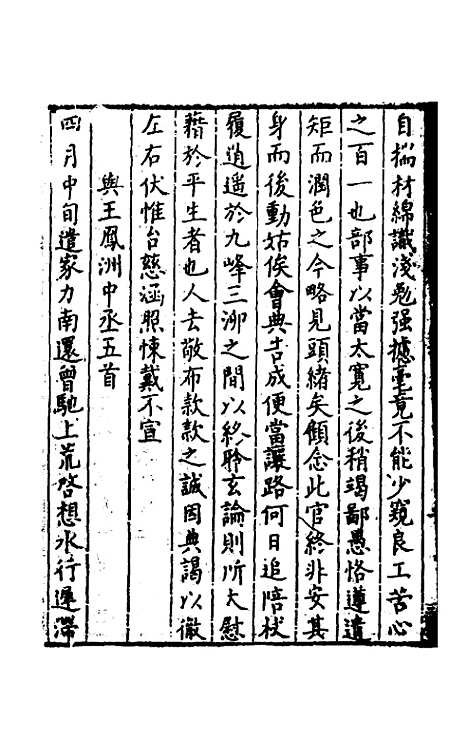 自揣材綿識淺勉强攄毫竟不能少窺良工苦心
之百一也部事以當太寬之後稍竭鄙愚恪遵遺
矩而潤色之今略見頭緒矣顧念此官終非安其
身而後動姑俟會典告成便當讓路何日追陪杖
履逍遥於九峰三泖之間以終聆玄論則所大慰
藉於平生者也人去敬布款款之誠因典謁以徹
左右伏惟台慈涵照悚戴不宣
與王鳳洲中丞五首
四月中旬遣家力南還曾馳上荒啓想水行遲滯